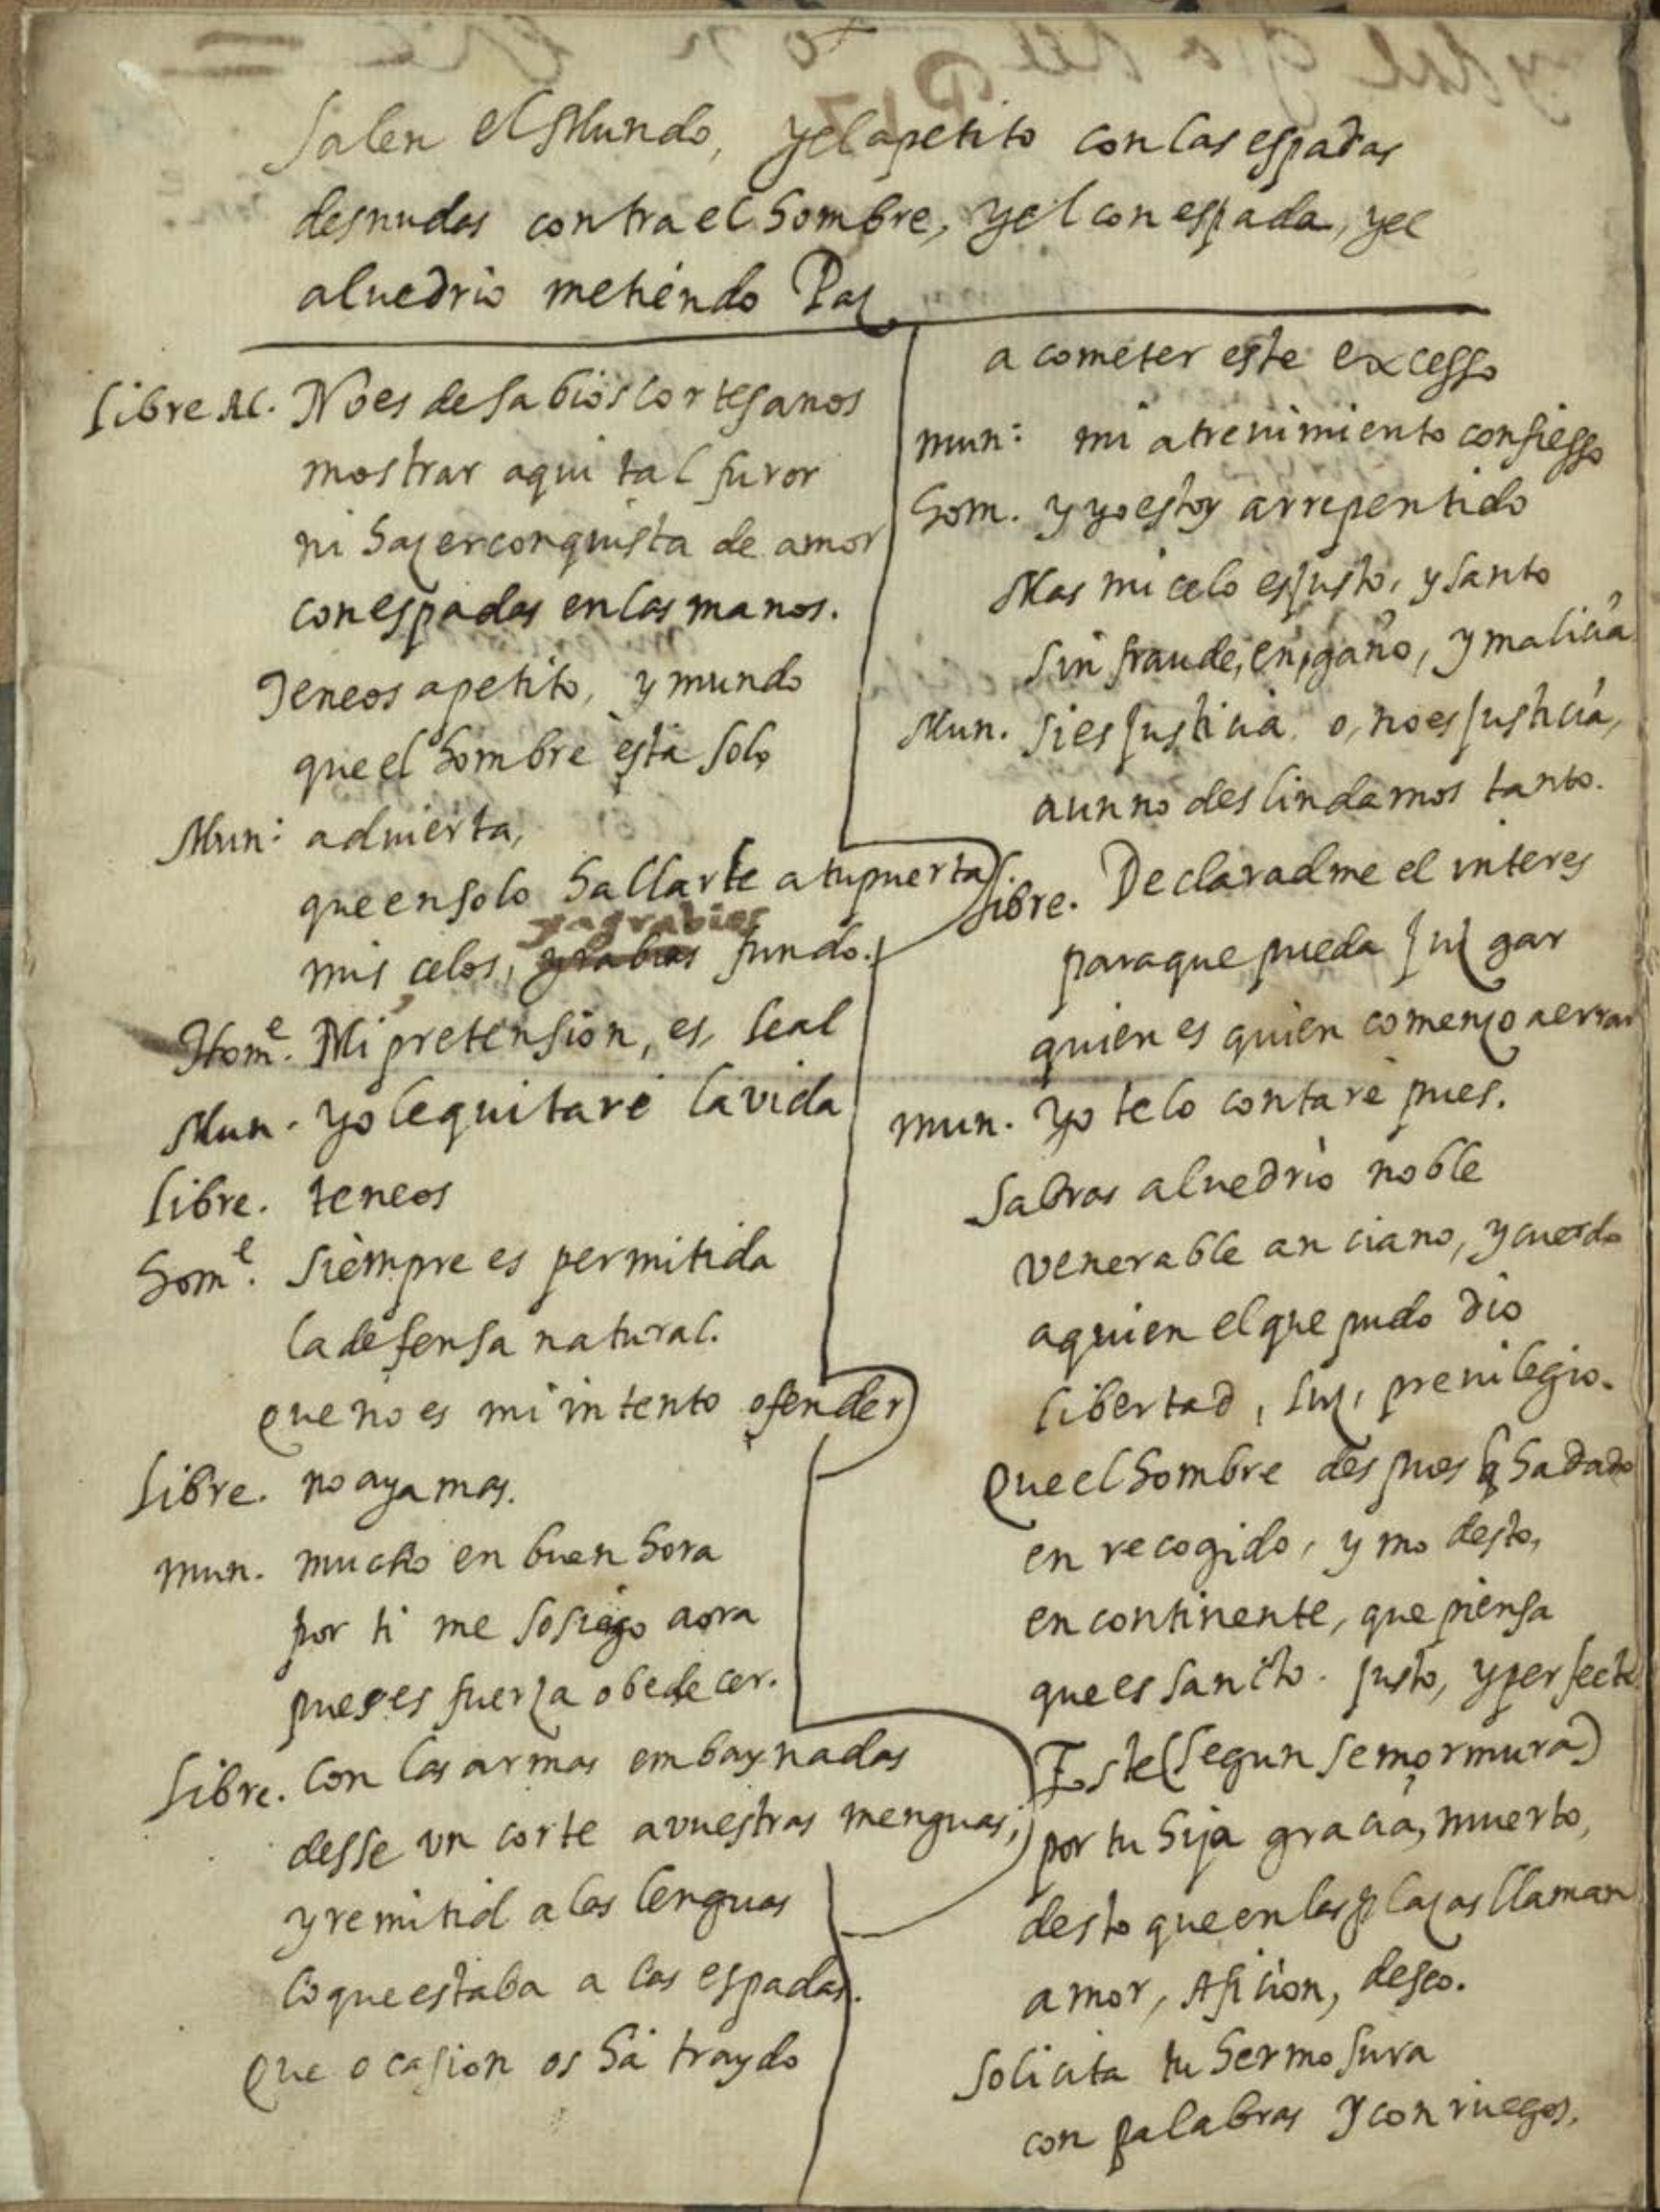 Salen el Mundo, y el apetito con las espadas
desnudas contra el hombre, y el con espada, y el
aluedrio metiendo Paz
libre Al. No es de sabios cortesanos
mostrar aqui tal furor
ni hazer conquista de amor
con espadas en las manos.
Teneos apetito, y mundo
que el hombre esta solo
Mun: aduierta,
que en solo hallarte a tu puerta
mis celos, y agrabios fundo.
Home. Mi pretension, es, leal
Mun. yo le quitaré la vida
libre. teneos
home. siempre es permitida
la defensa natural.
Que no es mi intento ofender
libre. no aya mas.
mun. mucho en buen hora
por ti me sosiego aora
pues es fuerza obedecer.
libre. Con las armas embaynadas
desse vn corte a vuestras menguas,
y remitid a las lenguas
lo que estaba a las espadas.
Que ocasion os há traydo
a cometer este excesso
mun: mi atreuimiento confiesso
hom. y yo estoy arrepentido
Mas mi celo es justo, y santo
sin fraude, engaño, y malicia
Mun. si es justicia o, no es justicia,
aun no deslindamos tanto.
libre. Declaradme el interes
para que pueda juzgar
quien es quien comenzo a errar
mun. yo te lo contaré pues.
Sabras aluedrio noble
venerable anciano, y cuerdo
a quien el que pudo dio
libertad, luz, preuilegio.
Que el hombre despues q ha dado
en recogido, y modesto,
en continente, que piensa
que es sancto. justo, y perfecto
Este (segun se mormura)
por tu hija gracia, muerto,
desto que en las plazas llaman
amor, aficion, deseo.
Solicita tu hermosura
con palabras y con ruegos,